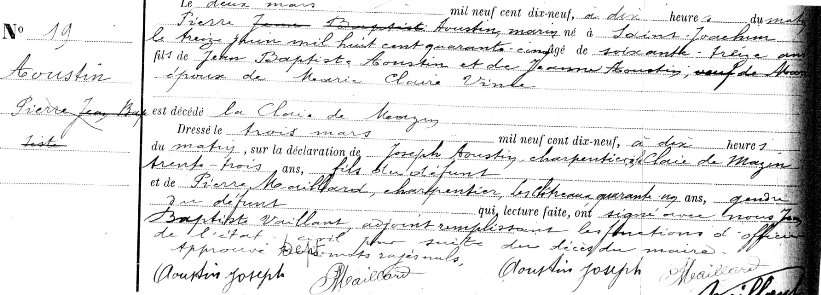 Le deux mars mil neuf cent dix-neuf, à dix heures du matin
No 19
Pierre Jean Baptiste Aoustin, marin né à Saint-Joachim
le treize juin mil huit cent quarante-cinq âgé de soixante-treize ans
fils de Jean Baptiste Aoustin et de Jeanne Aoustin, veuf de
Aoustin
époux de Marie Claire Vince
Pierre Jean Bap
tiste
est décédé la Claie de Mazin
Dressé le trois mars mil neuf cent dix-neuf, à dix heures
du matin, sur la déclaration de Joseph Aoustin, charpentier, Claie de Mazin
trente-trois ans, fils du défunt
et de Pierre Maillard, charpentier, quarante ans, gendre
du défunt qui, lecture faite, ont signé avec nous Jean
Baptiste Vaillant adjoint remplissant les fonctions d'officier
de l'état civil par suite du décès du maire.
Approuvé mots rayés nuls.
Aoustin Joseph Maillard Aoustin Joseph Maillard
Vaillant